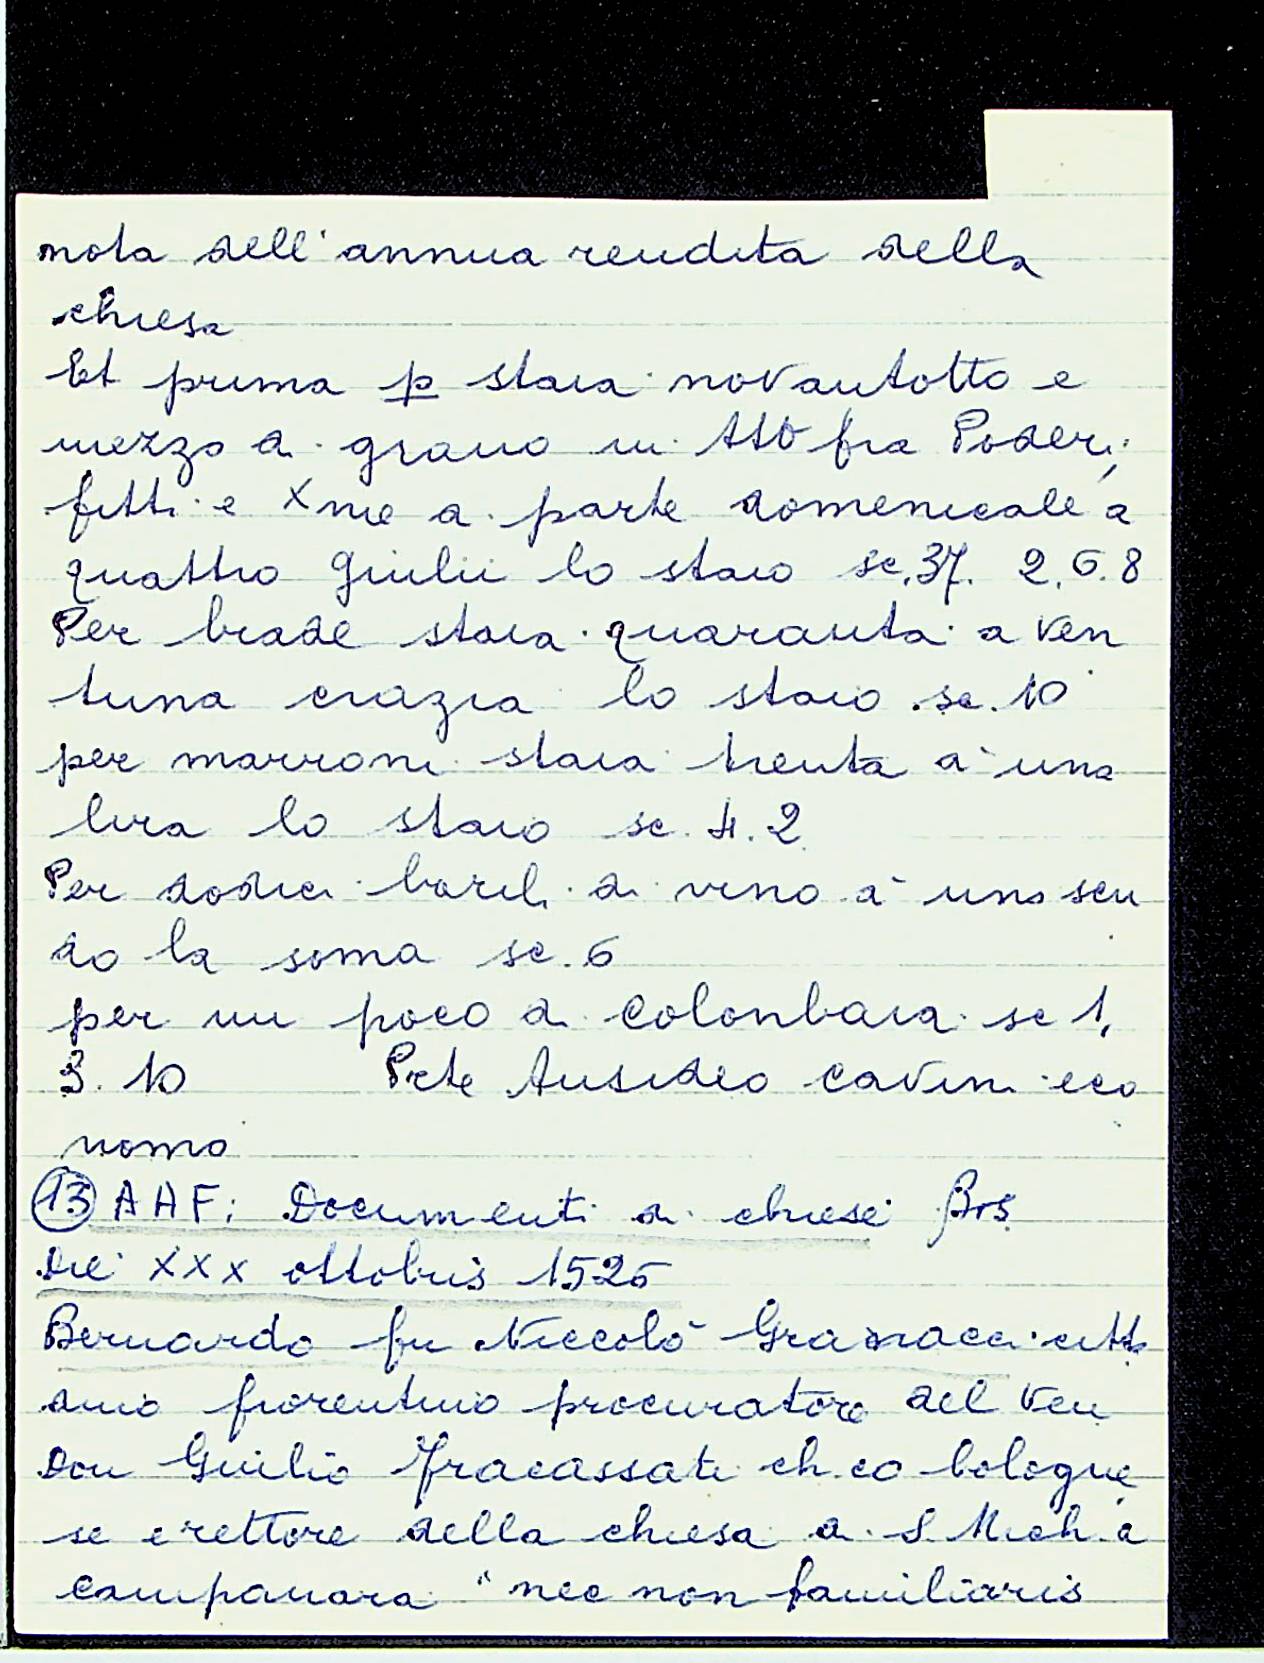 nota dell'annua rendita della
chiesa
Et prima p staia novantotto e
mezzo di grano in tto fra Poderi,
fitti e Xme a parte domenicale a
quattro Giulii lo staio sc. 37. 2. 6. 8
Per biade staia quaranta a ven
tuna crazia lo staio sc. 10
per marroni staia trenta a una
lira lo staio sc. 4. 2
Per dodici barili di vino a uno scu
do la soma sc. 6
per un poco di colonbaia sc 1.
3. 10 Prete Ausideo Cavini eco
nomo
(13) AHF: Documenti di chiese
Die XXX ottobris 1526
Bernardo fu Niccolò Granacci citta
dino fiorentino procuratore del Ven
Don Giulio Fracassati ch.co bologne
se e rettore della chiesa di S. Mich. a
Campanara "nec non familiaris